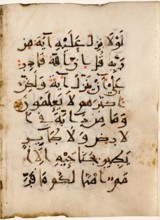 لولا نزل عليه آية من
ربه قل إن الله قادر
على أن ينزل آية ولكن
أكثرهم لا يعلمون
وما من دابة في ا
لأرض ولا طئر
يطير بجناحيه إلا أ
مم أمثالكم ما فر